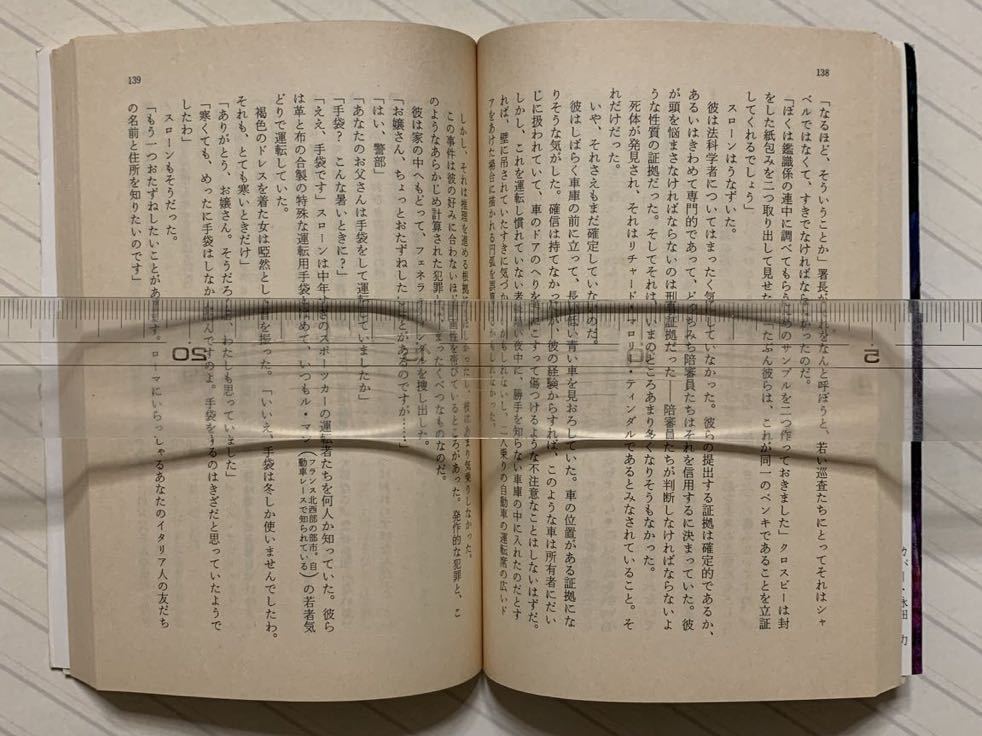 138
「なるほど、そういうことか」署長が
をなんと呼ぼうと、若い巡査たちにとってそれはシャ
ベルではなくて、すきでなければなら
かったのだ。
「ぼくは鑑識係の連中に調べてもらう
めのサンプルを二つ作っておきました」クロスビーは封
をした紙包みを二つ取り出して見せた
たぶん彼らは、これが同一のペンキであることを立証
してくれるでしょう」
スローンはうなずいた。
彼は法科学者についてはまったく気
していなかった。彼らの提出する証拠は確定的であるか、
あるいはきわめて専門的であって、ど
みち陪審員たちはそれを信用するに決まっていた。彼
が頭を悩まさなければならないのは刑
証拠だった――陪審員たちが判断しなければならないよ
うな性質の証拠だった。そしてそれは
いまのところあまり多くなりそうもなかった。
死体が発見され、それはリチャード・マロリー・ティンダルであるとみなされていること。そ
れだけだった。
いや、それさえもまだ確定していな
のだ。
彼はしばらく車庫の前に立って、長
青い車を見おろしていた。車の位置がある証拠にな
りそうな気がした。確信は持てなかったが、彼の経験からすれば、このような車は所有者にだい
じに扱われていて、車のドアのへりを
こすって傷つけるような不注意なことはしないはずだ。
しかし、これを運転し慣れていない者
夜中に、勝手を知らない車庫の中に入れたのだとす
れば、壁に吊されていたすきに気づか
かもしれないし、二人乗りの自動車の運転席の広いド
アをあけた場合に描かれる円弧を
かもしれなかった。
139
しかし、それは推理を進める根拠
彼はあまり気乗りしなかった。
この事件は彼の好みに合わないほ
計画性を帯びているところがあった。発作的な犯罪と、こ
のようなあらかじめ計算された犯罪
まったくべつなものなのだ。
彼は家の中へもどって、フェネラ
ティンダルを捜し出した。
「お嬢さん、ちょっとおたずねした
ことがあるのですが……」
「はい、警部」
「あなたのお父さんは手袋をして運転していましたか」
「手袋？　こんな暑いときに？」
「ええ、手袋です」スローンは中年すぎのスポーツカーの運転者たちを何人か知っていた。彼ら
は革と布の合製の特殊な運転用手袋をはめて、いつもル・マン（フランス北西部の都市。自動車レースで知られている）の若者気
どりで運転していた。
褐色のドレスを着た女は啞然とし
目を据った。「いいえ、手袋は冬しか使いませんでしたわ。
それも、とても寒いときだけ」
「ありがとう、お嬢さん。そうだろ
と、わたしも思っていました」
「寒くても、めったに手袋はしなか
んですのよ。手袋をするのはきざだと思っていたようで
したわ」
スローンもそうだった。
「もう一つおたずねしたいことがあ
ます。ローマにいらっしゃるあなたのイタリア人の友だち
の名前と住所を知りたいのです」
50
カバー・永田　力